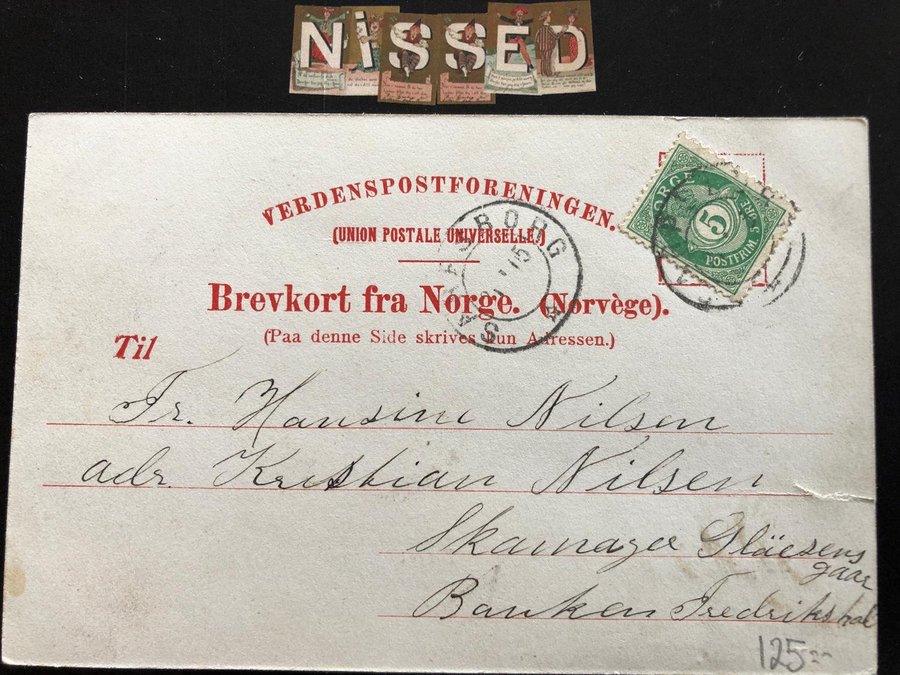 NiSSED
VERDENSPOSTFORENINGEN.
(UNION POSTALE UNIVERSELLE.)
NORGE
5
POSTFRIM.
SARPSBORG
15
Brevkort fra Norge. (Norvège).
(Paa denne Side skrives kun Adressen.)
Til
Fr. Hansine Nilsen
adr. Kristian Nilsen
Skomager
gaar
Banken Fredrikshal
125